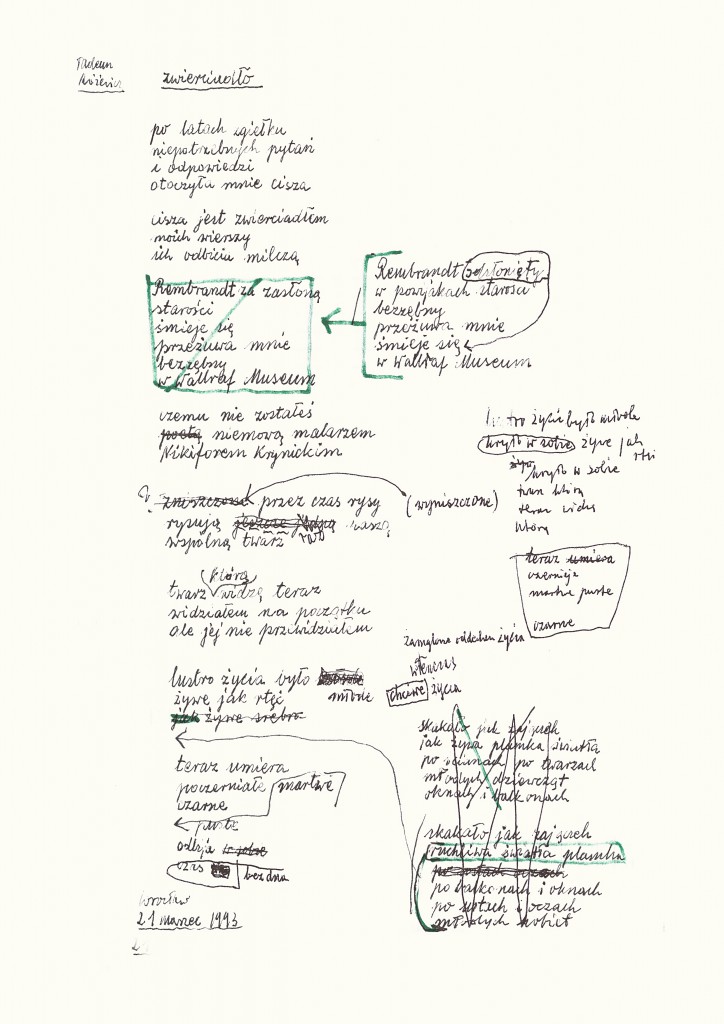 Tadeusz
Różewicz
zwierciadło
po latach zgiełku
niepotrzebnych pytań
i odpowiedzi
otoczyła mnie cisza
cisza jest zwierciadłem
moich wierszy
ich odbicia milczą
Rembrandt za zasłoną
starości
śmieje się
przeżuwa mnie
bezzębny
w Wallraf Museum
Rembrandt odsłonięty
w powijakach starości
bezzębny
przeżuwa mnie
śmieje się
w Wallraf Museum
czemu nie zostałeś
poetą niemową malarzem
Nikiforem Krynickim
zniszczone przez czas rysy
(wyniszczone)
rysują jeszcze naszą
wspólną twarz
którą
twarz widzę teraz
widziałem na początku
ale jej nie przewidziałem
lustro życia było
żywe jak rtęć
młode
jak żywe srebro
teraz umiera
poczerniałe martwe
czarne
puste
odbija w sobie
czas
bez dna
Wrocław
21 marzec 1993
lustro życia było młode
kryło w sobie żywe jak
rtęć
kryło w sobie
twarz którą
teraz widzę
którą
teraz umiera
czernieje
martwe puste
czarne
zamglone oddechem życia
wtenczas
chciwe życia
skakało jak zajączek
jak żywa plamka światła
po ścianach po twarzach
młodych dziewcząt
oknach i balkonach
skakało jak zajączek
ruchliwa światła plamka
po ustach oczach
po balkonach i oknach
po ustach i oczach
młodych kobiet